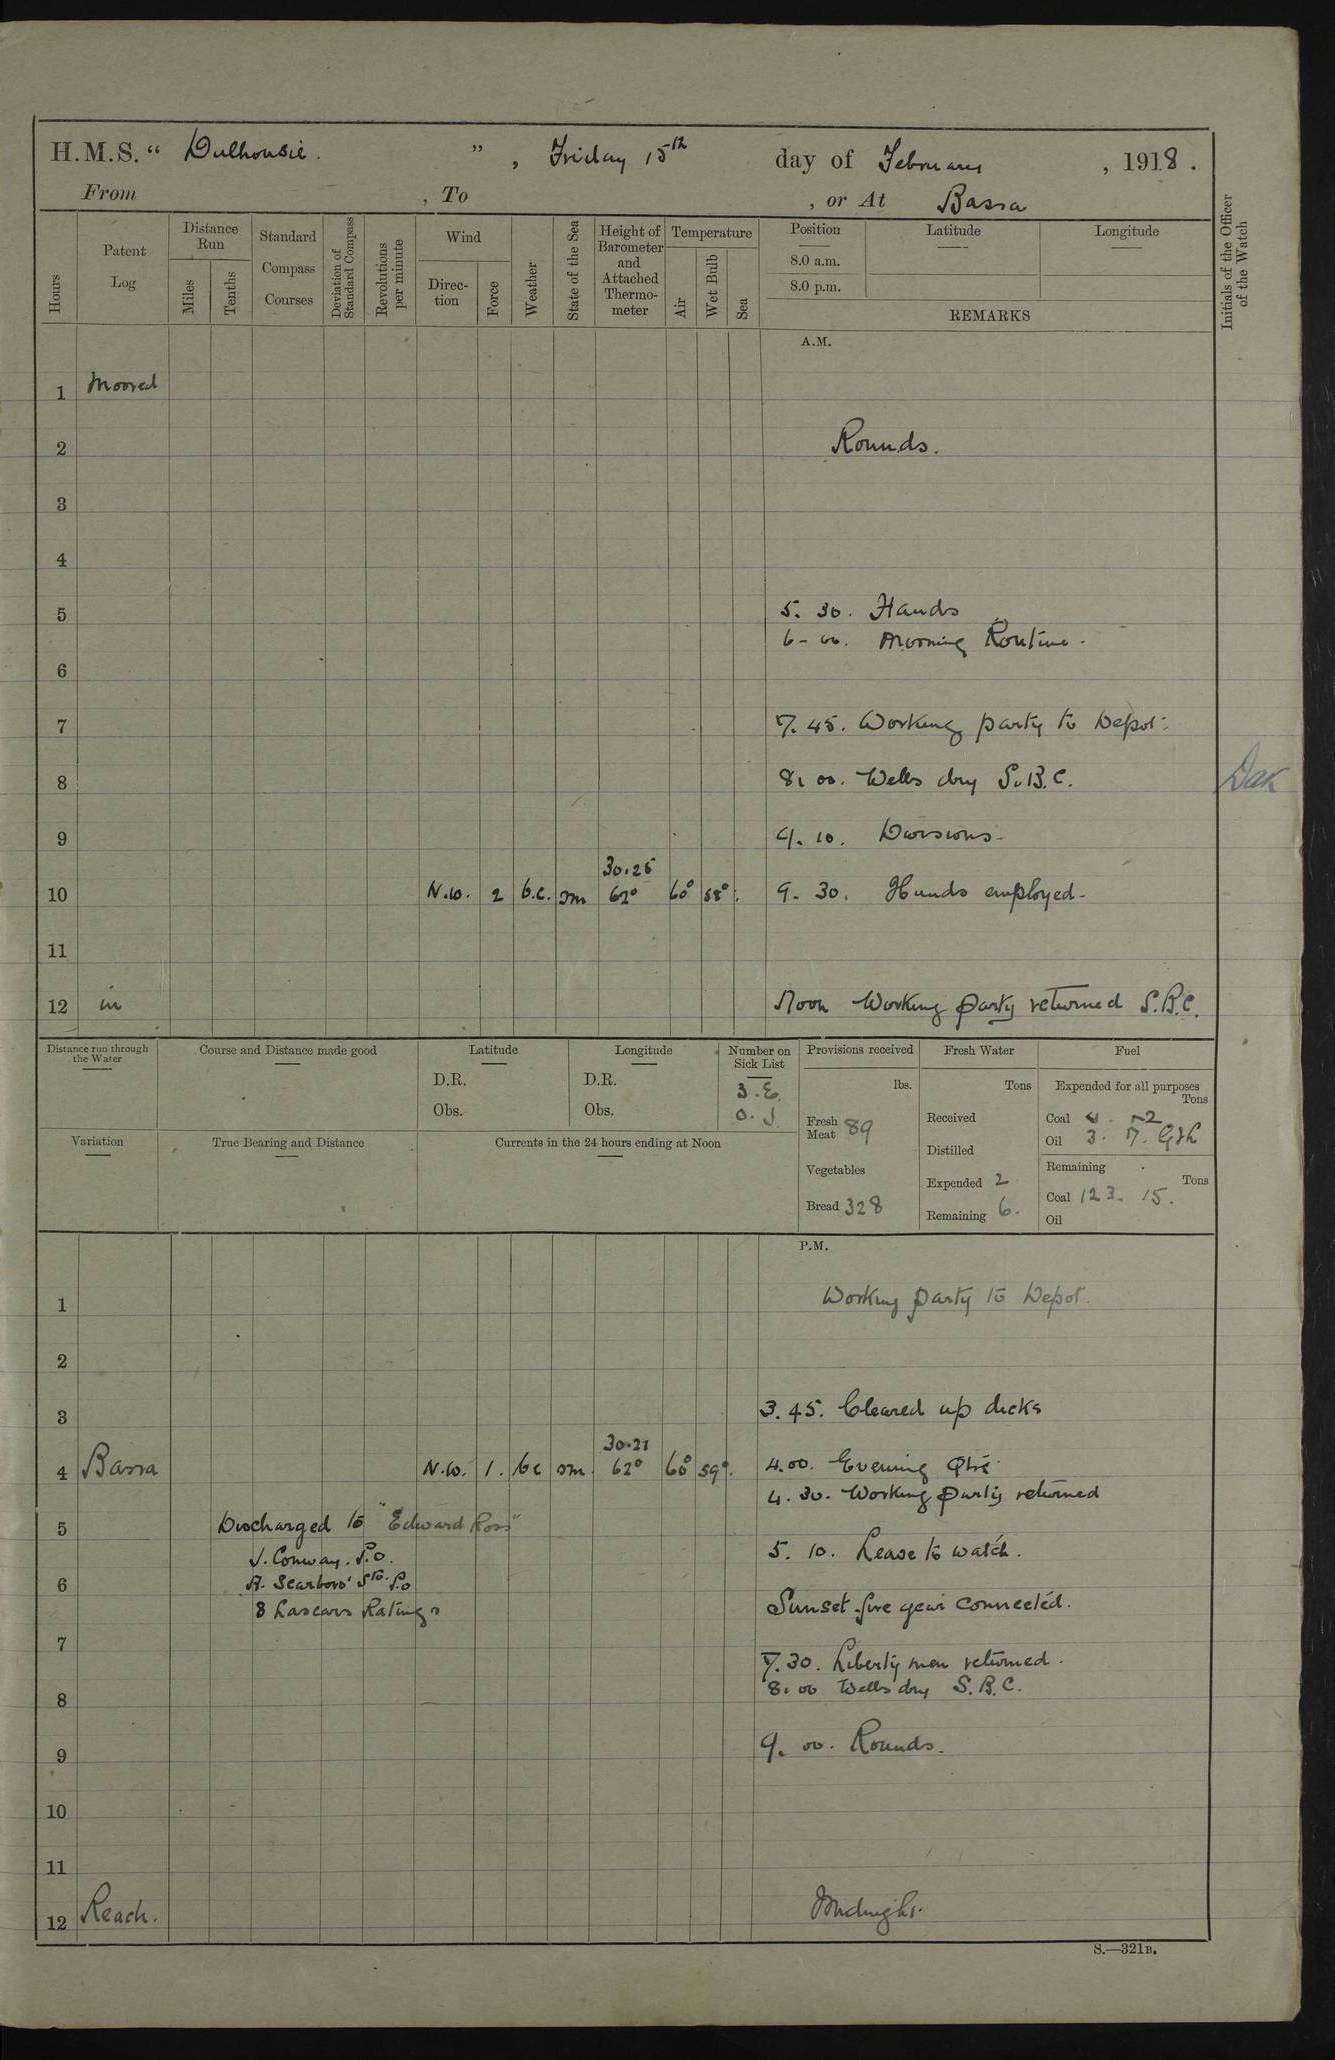 H.M.S. “ Dalhousie. ” , Friday 15th day of February , 1918.
From , To , or At Basra
Hours
Patent Log
Distance Run
Miles
Tenths
Standard Compass Courses
Deviation of Standard Compass
Revolutions per minute
Wind
Direction
Force
Weather
State of the Sea
Height of Barometer and Attached Thermometer
Temperature
Air
Wet Bulb
Sea
Position
8.0 a.m.
8.0 p.m.
Latitude
Longitude
REMARKS
Initials of the Officer of the Watch
A.M.
1 Moored
2 Rounds.
3
4
5 5. 30. Hands
6-00. Morning Routine.
6
7 7. 45. Working party to Depot.
8 8. 00. Wells dry S.B.C.
9 9. 10. Divisions.
30.25
10 N.W. 2 b.c. sm 62° 60° 58° 9. 30. Hands employed.
11
12 in Noon Working party returned S.B.C.
Distance run through the Water
Course and Distance made good
Latitude
D.R.
Obs.
Longitude
D.R.
Obs.
Number on Sick List
3. E.
0. J
Provisions received
lbs.
Fresh Meat 89
Vegetables
Bread 328
Fresh Water
Tons
Received
Distilled
Expended 2
Remaining 6.
Fuel
Expended for all purposes
Tons
Coal
Oil 3. 7.
Remaining
Tons
Coal 123. 15.
Oil
Variation
True Bearing and Distance
Currents in the 24 hours ending at Noon
P.M.
1 Working party to Depot
2
3 3. 45. Cleared up decks
30.21
4 Basra N.W. 1. bc sm. 62° 60° 59°. 4.00. Evening Qtrs.
4. 30. Working party returned
5 Discharged to "Edward Ross"
J. Conway. P.O. 5. 10. Leave to watch.
6 A. Scarboro' Sto. P.O
8 Lascars Ratings Sunset fire gear connected.
7 7.30. Liberty men returned.
8 8. 00 Wells dry S.B.C.
9 9. 00. Rounds.
10
11
12 Reach. Midnight.
S.—321B.